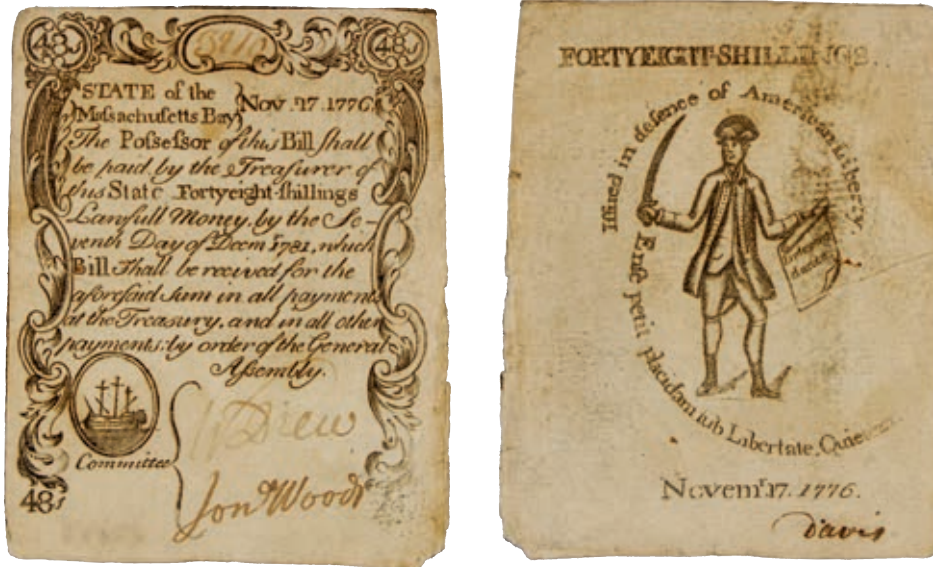 48s 48s
STATE of the
Maſsachuſetts Bay
Nov. 17. 1776
The Poſseſsor of this Bill ſhall
be paid by the Treaſurer of
this State Fortyeight-ſhillings
Lawfull Money, by the Se-
venth Day of Decemr 1781, which
Bill ſhall be received for the
aforeſaid ſum in all payments
at the Treaſury, and in all other
payments: by order of the General
Aſsembly.
Committee
Drew
48s
Jona Woods
FORTYEIGHT-SHILLINGS..
Iſsued in defence of American Liberty.
Enſe petit placidam ſub Libertate, Quietem.
Novemr. 17. 1776.
Davis